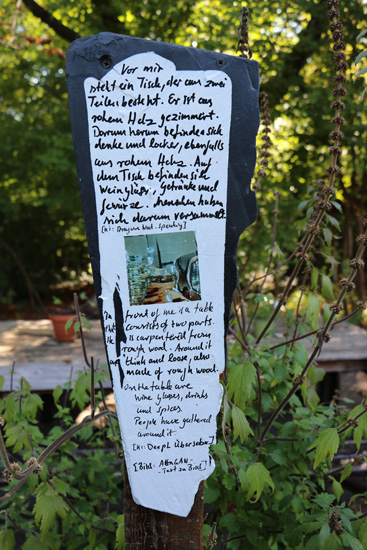 Vor mir
steht ein Tisch, der aus zwei
Teilen besteht. Er ist aus
rohem Holz gezimmert.
Darum herum befinden sich
denke und locker, ebenfalls
aus rohem Holz. Auf
dem Tisch befinden sich
Weingläser, Getränke und
Gewürze. Menschen haben
sich darum versammelt.
[KI: Dragon Nat. Speaking]
In front of me is a table
consists of two parts.
Is carpentered from
rough wood. Around it
think and loose, also
made of rough wood.
On the table are
wine glasses, drinks
and spices.
People have gathered
around it.
[KI: DeepL Übersetzer]
[Bild: AttnGAN-
-Text zu Bild]